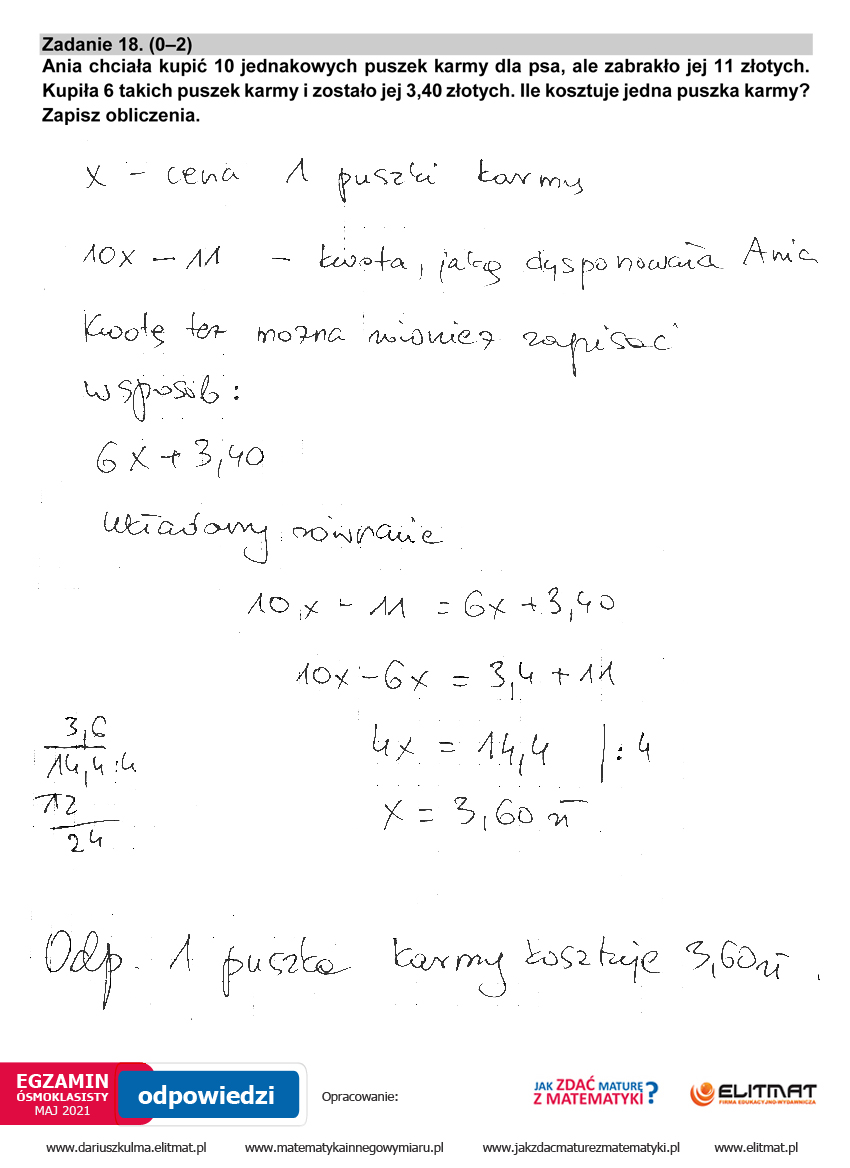 Zadanie 18. (0–2)
Ania chciała kupić 10 jednakowych puszek karmy dla psa, ale zabrakło jej 11 złotych.
Kupiła 6 takich puszek karmy i zostało jej 3,40 złotych. Ile kosztuje jedna puszka karmy?
Zapisz obliczenia.
x – cena 1 puszki karmy
10x – 11 – kwota, jaką dysponowała Ania
Kwotę też można również zapisać
w sposób:
6x + 3,40
Układamy równanie
10x - 11 = 6x + 3,40
10x - 6x = 3,4 + 11
4x = 14,4 | : 4
x = 3,60 zł
3,6
14,4 : 4
12
24
Odp. 1 puszka karmy kosztuje 3,60 zł.
EGZAMIN
ÓSMOKLASISTY
MAJ 2021
odpowiedzi
Opracowanie:
JAK ZDAĆ MATURĘ
Z MATEMATYKI?
ELITMAT
FIRMA EDUKACYJNO-WYDAWNICZA
www.dariuszkulma.elitmat.pl www.matematykainnegowymiaru.pl www.jakzdacmaturezmatematyki.pl www.elitmat.pl